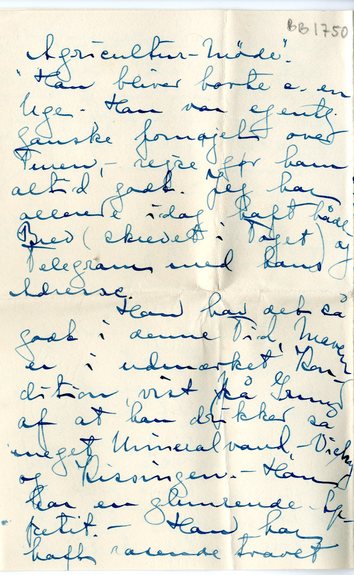 BB1750
Agricultur-Möde".
Han bliver borte c. en
Uge. Han var egentl.
ganske fornøjet over
Turen, - rejse gør ham
altid godt. Jeg har
allerede idag haft både
Brev (skrevet i Toget) og
Telegram med hans
Adresse.
Han har det så
godt i denne Tid, Maven
er i udmærket Kon-
dition, vist på Grund
af at han drikker så
meget Mineralvand, - Vichy
og Kissingen. - Han
har en glimrende Ap-
petit. - Han har
haft rasende travlt